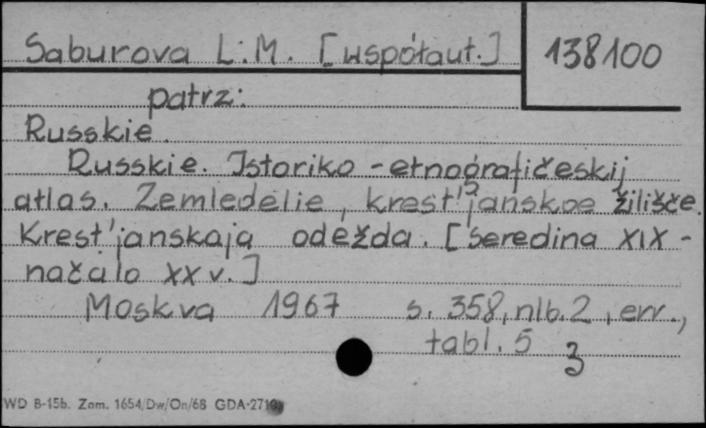 Saburova L.M. [współaut.] 138100
patrz:
Russkie.
Russkie. Istoriko-etnografičeskij
atlas. Zemledelie, krest'janskoe žilišče.
Krest'janskaja odežda. [Seredina XIX -
načalo XX v.]
Moskva 1967 s. 358, nlb. 2, err.,
tabl. 5 3
WD B-15b. Zam. 1654/Dw/On/68 GDA-2710